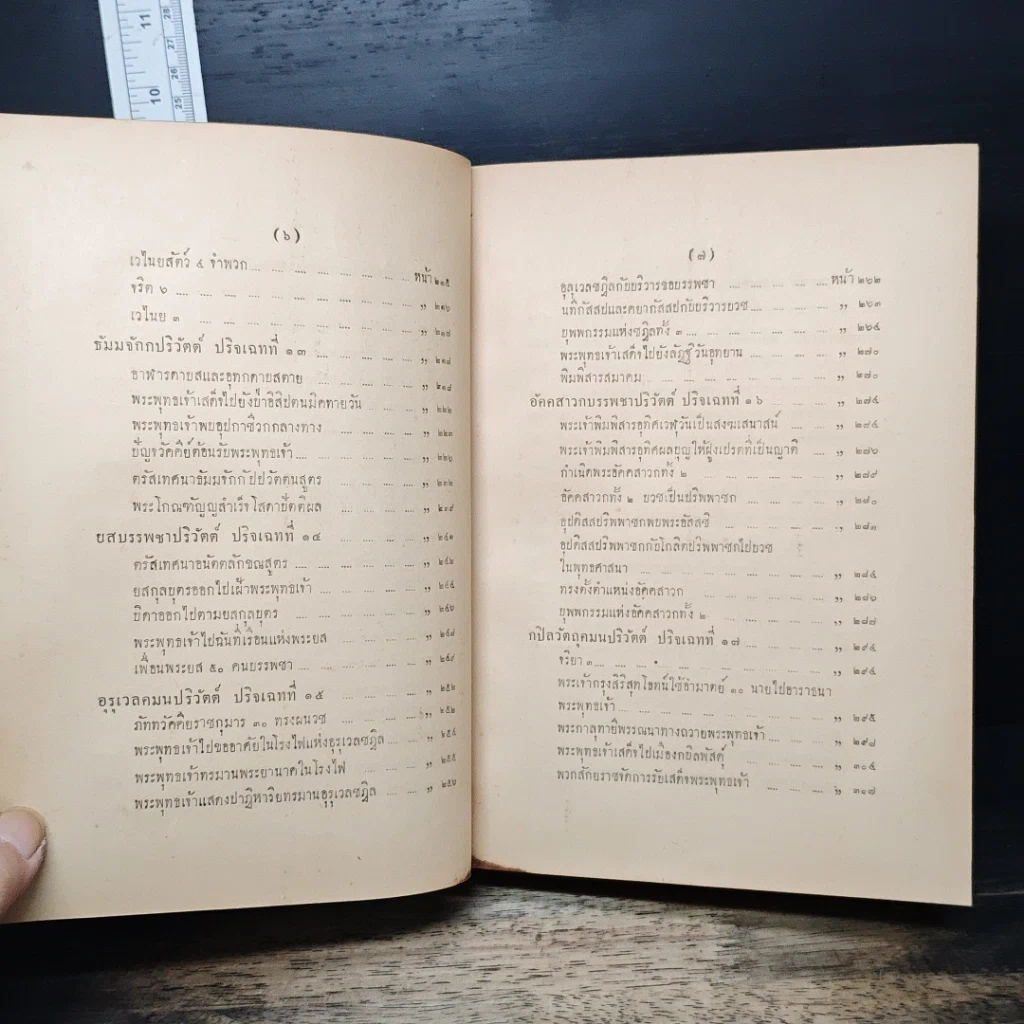 11
28
27
26
10
25
(๖)
เวไนยสัตว์ ๔ จำพวก หน้า ๒๑๕
จริต ๖ ,, ๒๑๖
เวไนย ๓ ,, ๒๑๗
ธัมมจักกปริวัตต์ ปริจเฉทที่ ๑๓ ,, ๒๑๘
อาฬารดาบสและอุทกดาบสตาย ,, ๒๑๘
พระพุทธเจ้าเสด็จไปยังป่าอิสิปตนมิคทายวัน ,, ๒๒๒
พระพุทธเจ้าพบอุปกาชีวกกลางทาง ,, ๒๒๓
ปัญจวัคคีย์ต้อนรับพระพุทธเจ้า ,, ๒๒๖
ตรัสเทศนาธัมมจักกัปปวัตตนสูตร ,,
พระโกณฑัญญสำเร็จโสดาปัตติผล ,,
ยสบรรพชาปริวัตต์ ปริจเฉทที่ ๑๔ ,, ๒๔๑
ตรัสเทศนาอนัตตลักขณสูตร ,, ๒๔๒
ยสกุลบุตรออกไปเฝ้าพระพุทธเจ้า ,, ๒๔๕
บิดาออกไปตามยสกุลบุตร ,, ๒๔๖
พระพุทธเจ้าไปฉันที่เรือนแห่งพระยส ,, ๒๔๗
เพื่อนพระยส ๕๐ คนบรรพชา ,, ๒๔๙
อุรุเวลคมนปริวัตต์ ปริจเฉทที่ ๑๕ ,, ๒๕๒
ภัททวัคคิยราชกุมาร ๓๐ ทรงผนวช ,, ๒๕๒
พระพุทธเจ้าไปขออาศัยในโรงไฟแห่งอุรุเวลชฎิล ,, ๒๕๔
พระพุทธเจ้าทรมานพระยานาคในโรงไฟ ,, ๒๕๕
พระพุทธเจ้าแสดงปาฏิหาริยทรมานอุรุเวลชฎิล ,, ๒๕๖
(๗)
อุลุเวลชฎิลกับบริวารขอบรรพชา หน้า ๒๖๒
นทีกัสสปและคยากัสสปกับบริวารบวช ,, ๒๖๓
บุพพกรรมแห่งชฎิลทั้ง ๓ ,, ๒๖๔
พระพุทธเจ้าเสด็จไปยังลัฏฐิวันอุทยาน ,, ๒๗๐
พิมพิสารสมาคม ,, ๒๗๐
อัคคสาวกบรรพชาปริวัตต์ ปริจเฉทที่ ๑๖ ,, ๒๗๕
พระเจ้าพิมพิสารอุทิศเวฬุวันเป็นสงฆเสนาสน์ ,, ๒๗๕
พระเจ้าพิมพิสารอุทิศผลบุญให้ฝูงเปรตที่เป็นญาติ ,, ๒๗๖
กำเนิดพระอัคคสาวกทั้ง ๒ ,, ๒๗๙
อัคคสาวกทั้ง ๒ บวชเป็นปริพพาชก ,, ๒๘๐
อุปติสสปริพพาชกพบพระอัสสชิ ,, ๒๘๓
อุปติสสปริพพาชกกับโกลิตปริพพาชกไปบวช
ในพุทธศาสนา ,, ๒๘๕
ทรงตั้งตำแหน่งอัคคสาวก ,, ๒๘๖
บุพพกรรมแห่งอัคคสาวกทั้ง ๒ ,, ๒๘๗
กปิลวัตถุคมนปริวัตต์ ปริจเฉทที่ ๑๗ ,, ๒๙๔
จริยา ๓ ,, ๒๙๔
พระเจ้ากรุงสิริสุทโธทน์ใช้อำมาตย์ ๑๐ นายไปอาราธนา
พระพุทธเจ้า ,, ๒๙๕
พระกาลุทายิพรรณนาทางถวายพระพุทธเจ้า ,, ๒๙๘
พระพุทธเจ้าเสด็จไปเมืองกบิลพัสดุ์ ,, ๓๐๔
พวกสักยราชจัดการรับเสด็จพระพุทธเจ้า ,, ๓๑๗